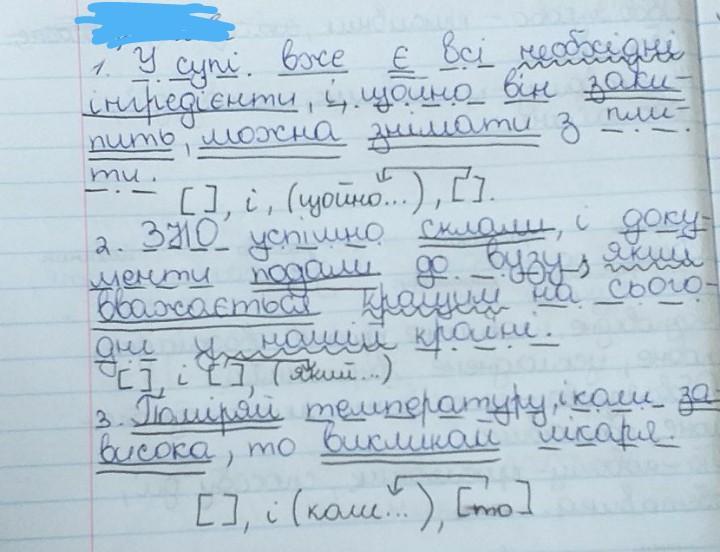 1. У супі вже є всі необхідні
інгредієнти, і, щойно він заки-
пить, можна знімати з пли-
ти.
[ ], і, (щойно...), [ ].
2. ЗНО успішно склали, і доку-
менти подали до вузу, який
вважається кращим на сього-
дні у нашій країні.
[ ], і [ ], (який...)
3. Поміряй температуру, і коли за-
висока, то викликай лікаря.
[ ], і (коли...), [то]